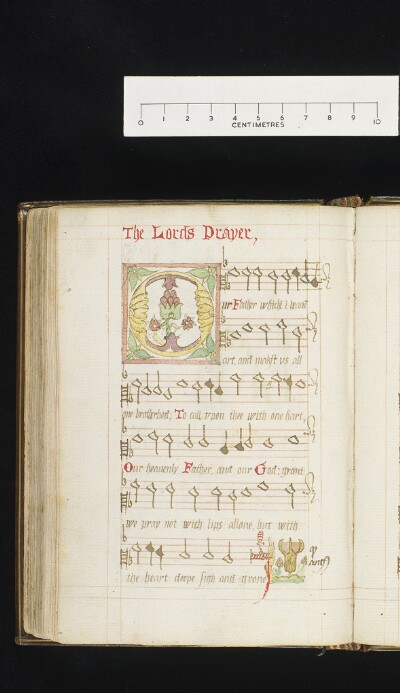 0 1 2 3 4 5 6 7 8 9 10
CENTIMETRES
The Lords Prayer,
Our Father which i heavē
art, and makst vs all
one brotherhod, To call vpon thee with one hart,
Our heavenly Father, and our God: grant
we pray not with lips allone, but with
the heart deepe sigh and grone